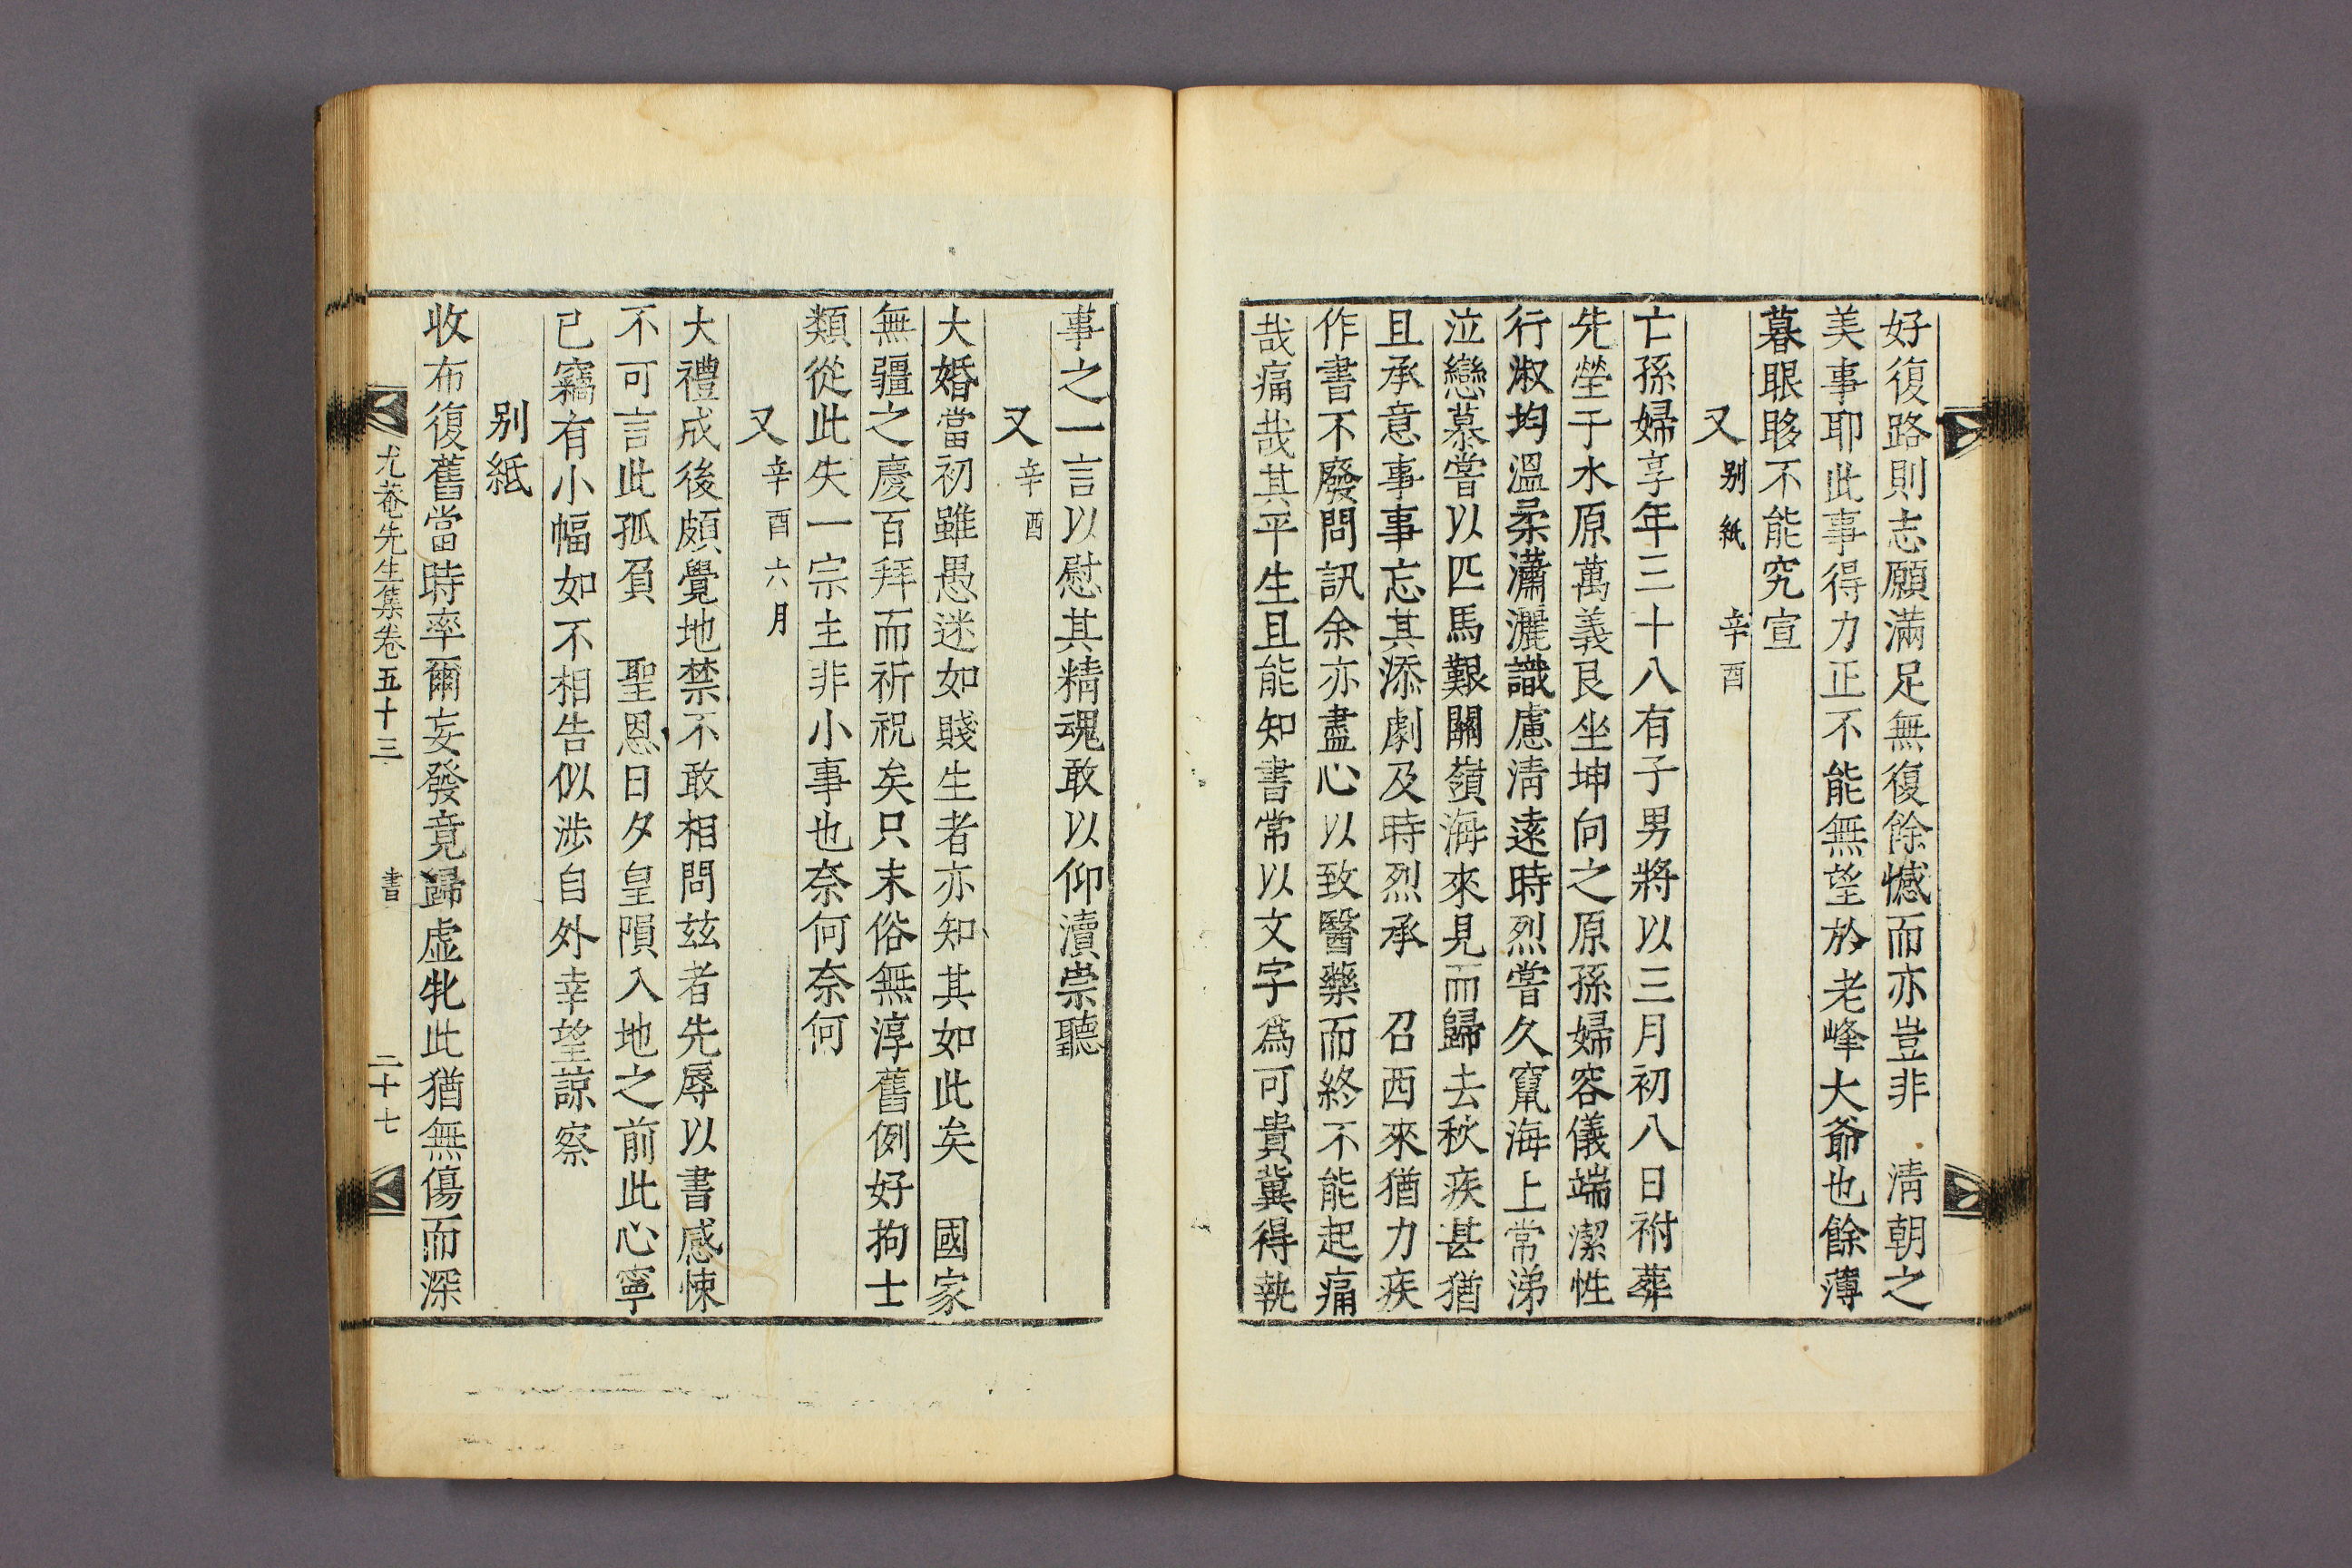 好復路則志願滿足無復餘憾而亦豈非 清朝之
美事耶此事得力正不能無望於老峰大爺也餘薄
暮眼眵不能究宣
又 別紙 辛酉
亡孫婦享年三十八有子男將以三月初八日祔葬
先塋于水原萬義艮坐坤向之原孫婦容儀端潔性
行淑均溫柔瀟灑識慮淸遠時烈嘗久竄海上常涕
泣戀慕嘗以匹馬艱關嶺海來見而歸去秋疾甚猶
且承意事事忘其添劇及時烈承 召西來猶力疾
作書不廢問訊余亦盡心以致醫藥而終不能起痛
哉痛哉其平生且能知書常以文字爲可貴冀得執
事之一言以慰其精魂敢以仰瀆崇聽
又 辛酉
大婚當初雖愚迷如賤生者亦知其如此矣 國家
無疆之慶百拜而祈祝矣只末俗無淳舊例好拘士
類從此失一宗主非小事也奈何奈何
又 辛酉六月
大禮成後頗覺地禁不敢相問玆者先辱以書感悚
不可言此孤負 聖恩日夕皇隕入地之前此心寧
已竊有小幅如不相告似涉自外幸望諒察
別紙
收布復舊當時率爾妄發竟歸虛牝此猶無傷而深
尤菴先生集卷五十三 書 二十七